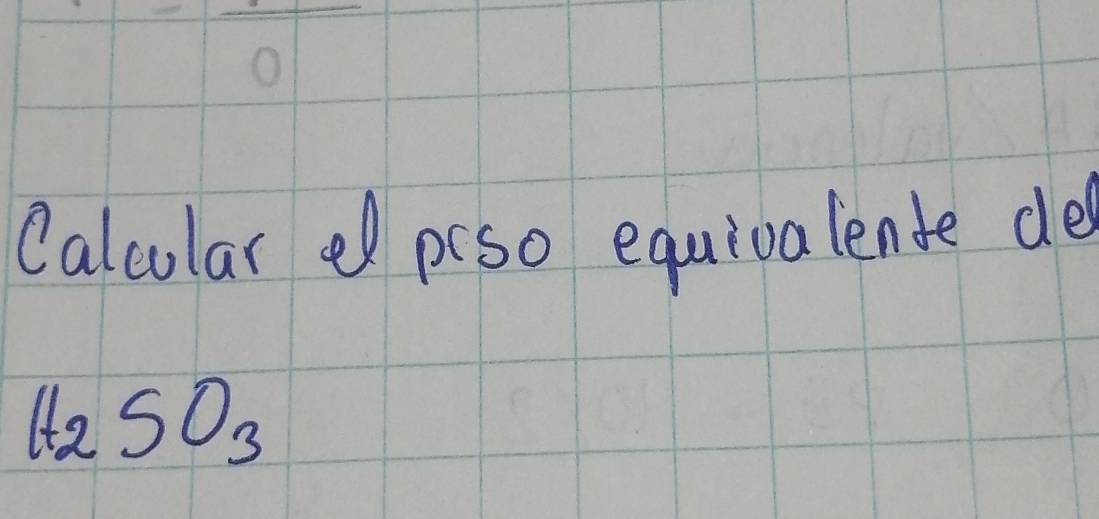 Calcular el peso equivalente del
H2SO3